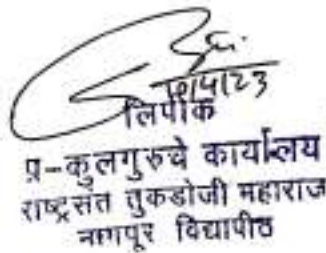 10/4/23
लिपीक
प्र-कुलगुरुचे कार्यालय
राष्ट्रसंत तुकडोजी महाराज
नागपूर विद्यापीठ